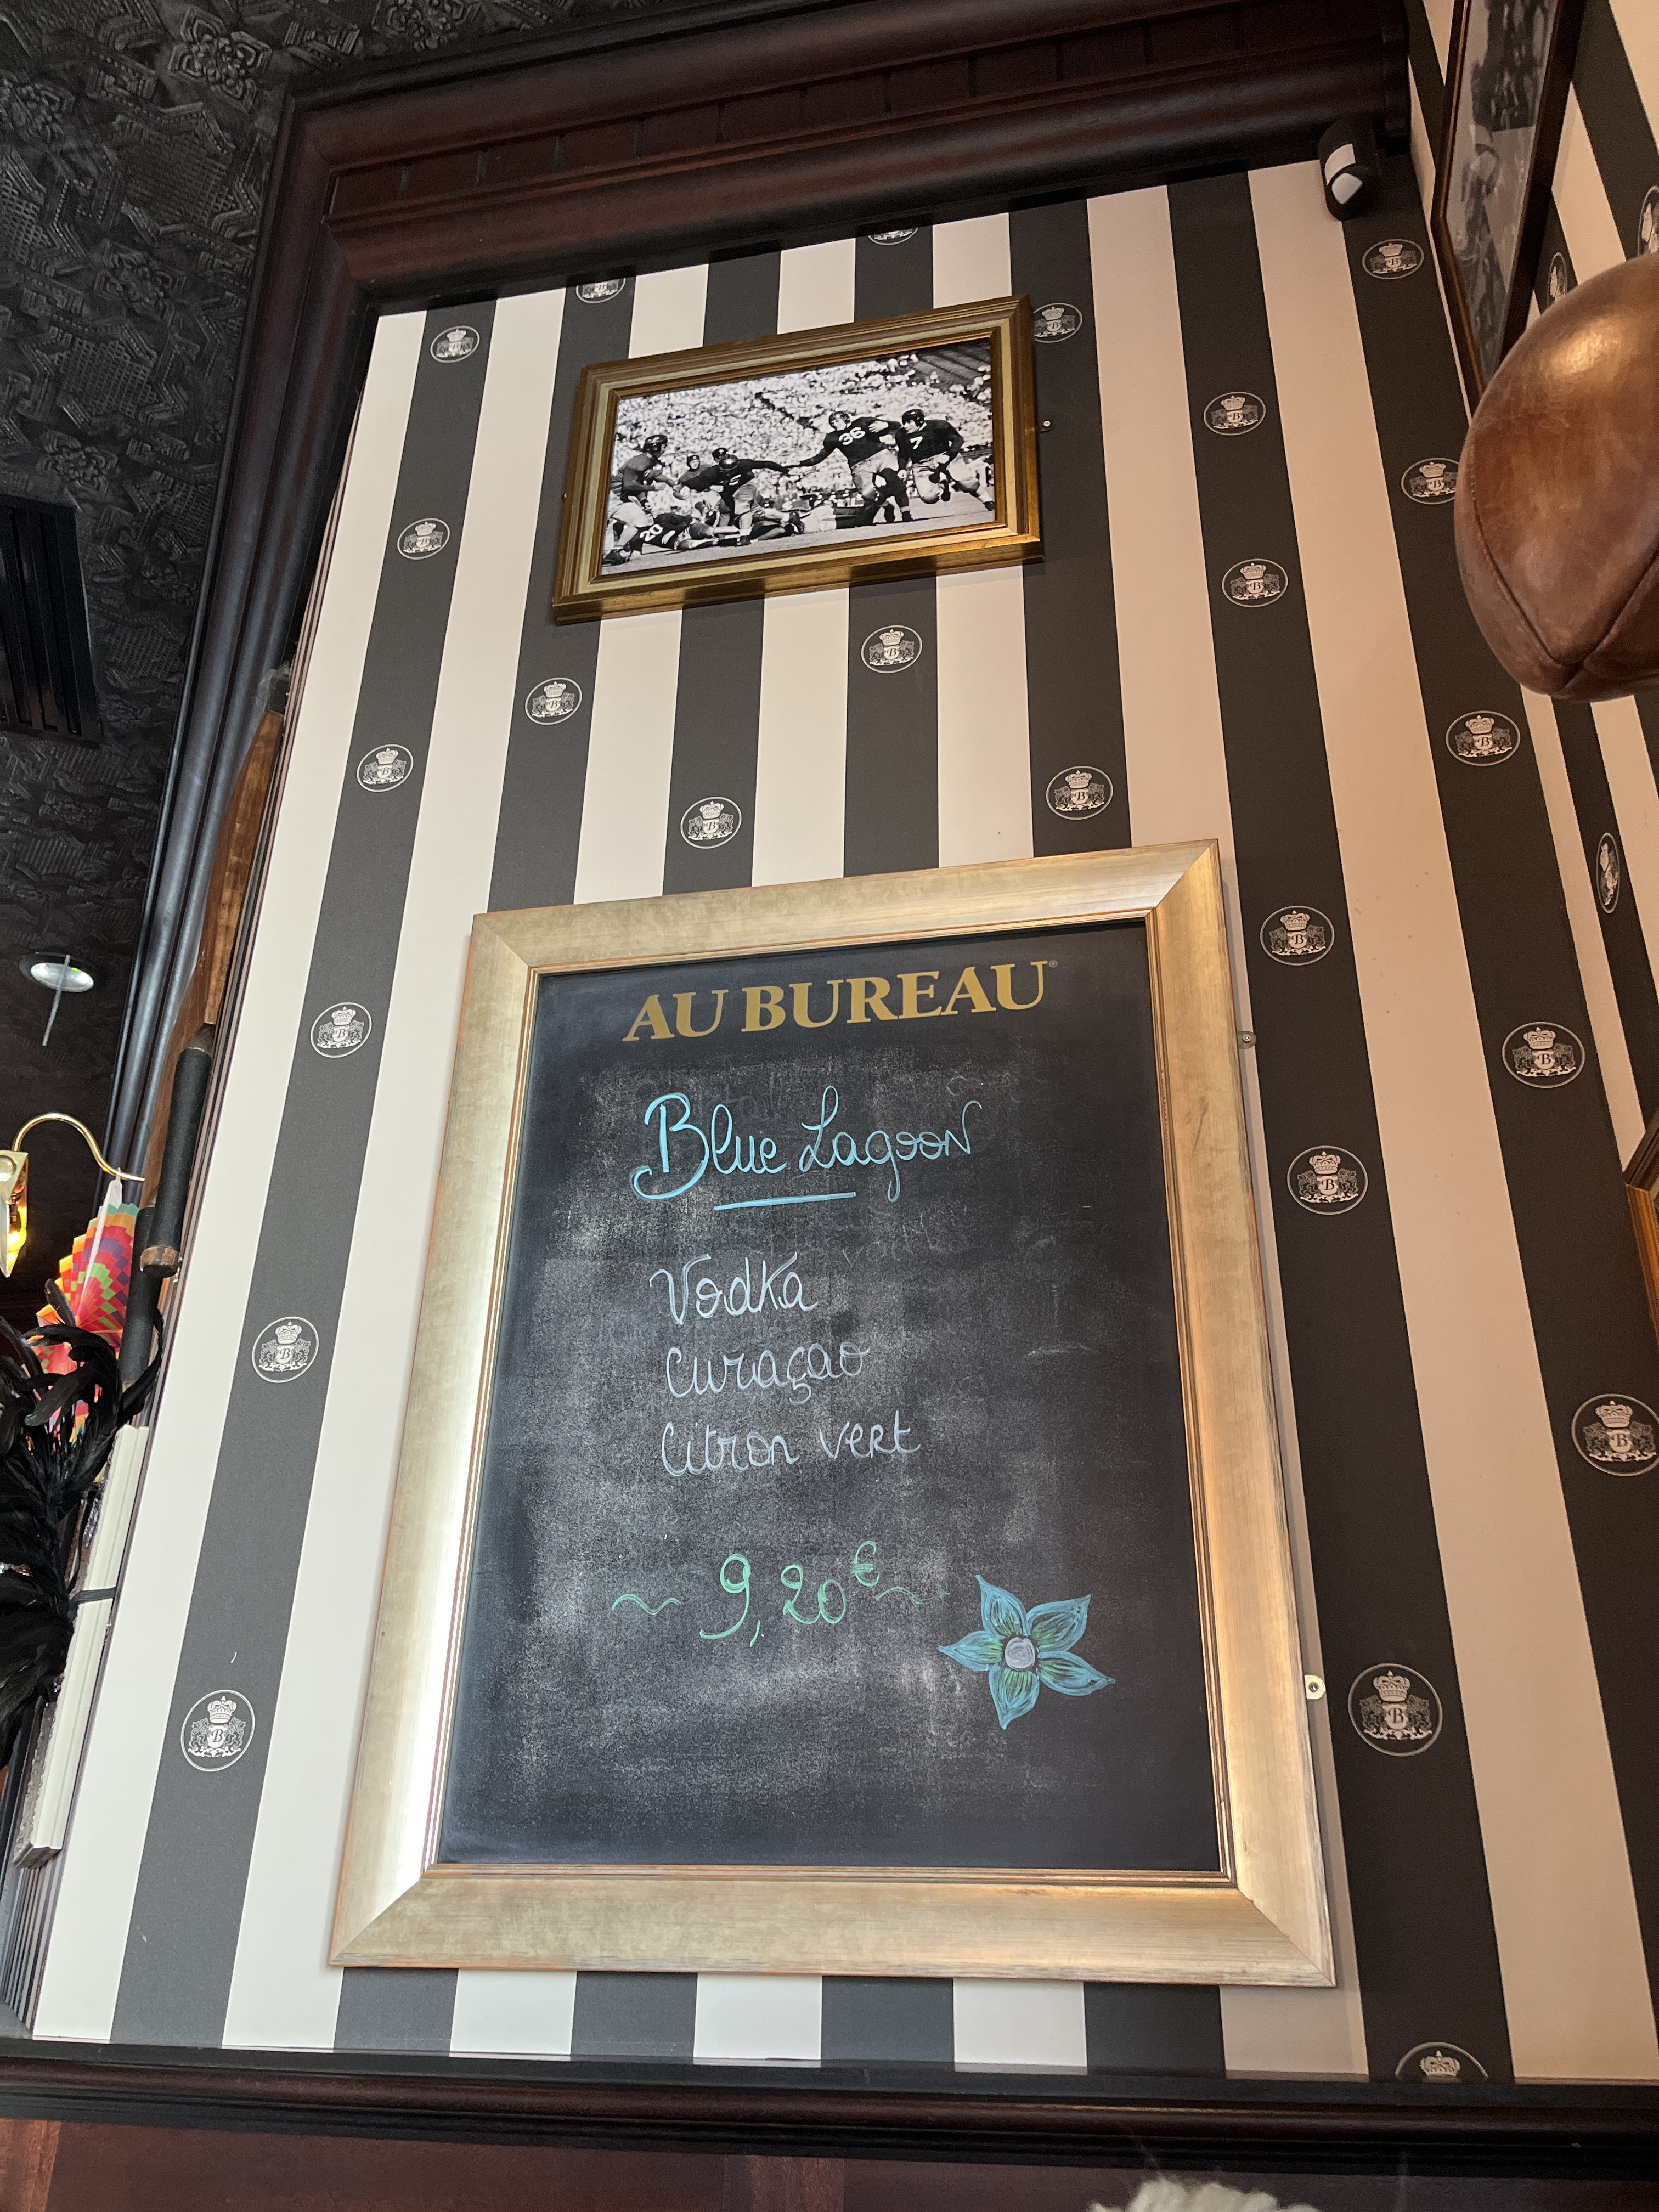 36
7
20
AU BUREAU®
Blue Lagoon
Vodka
Curaçao
Citron vert
~ 9,20€ ~
B